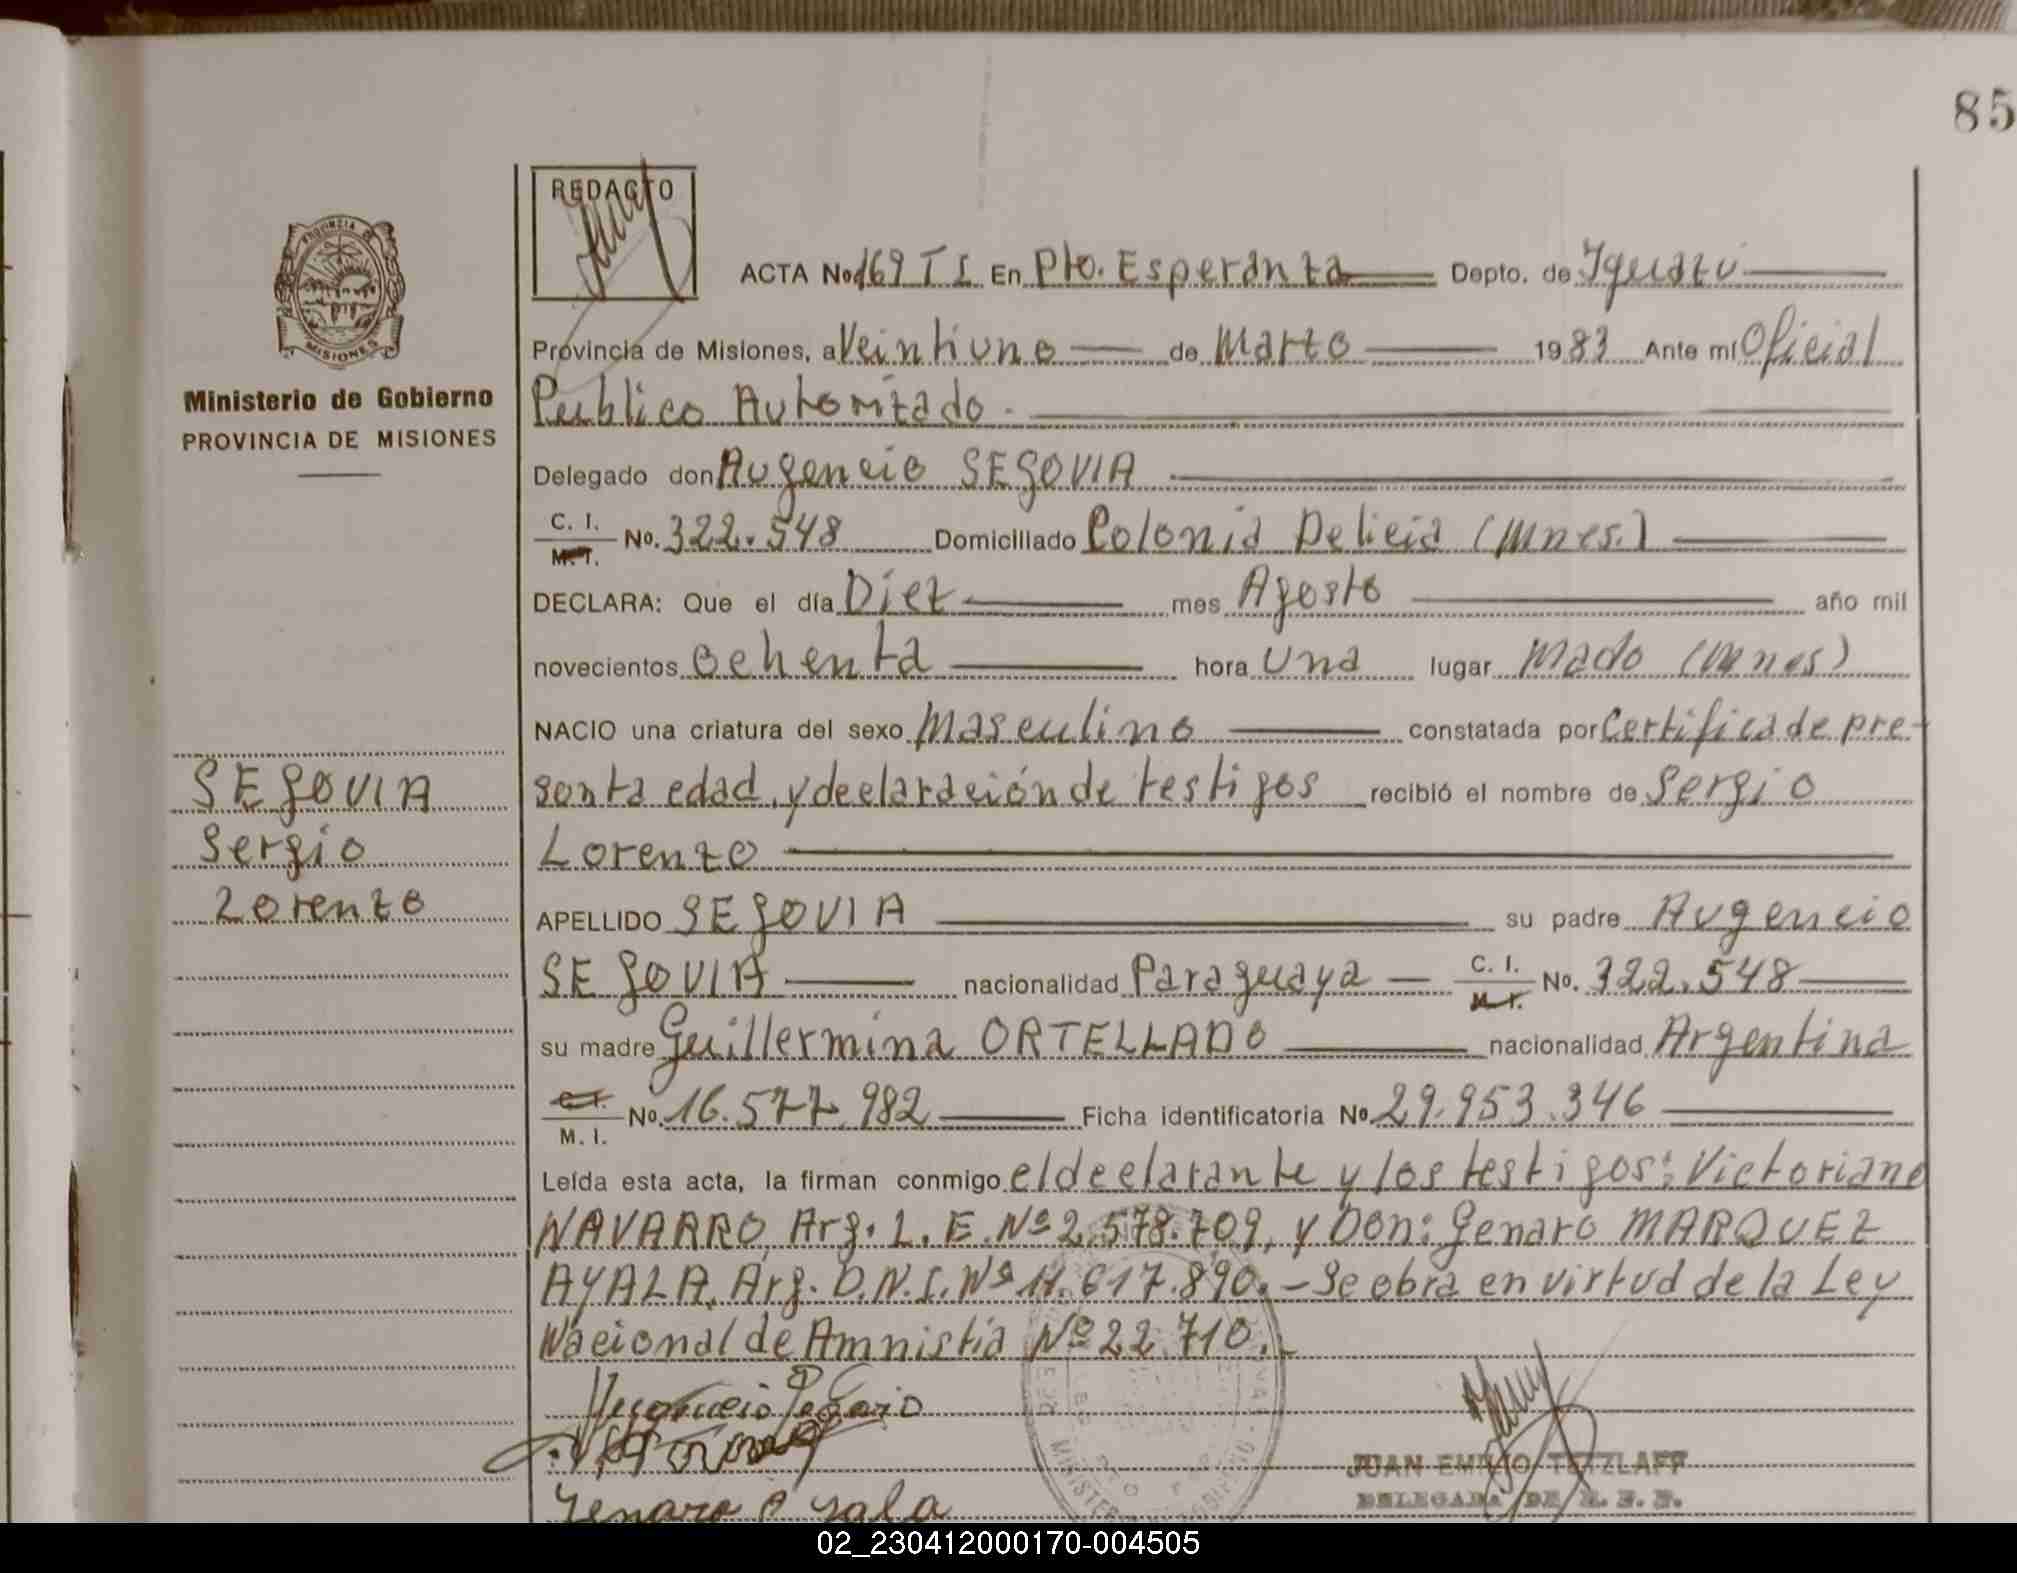 85
REDACTO
PROVINCIA DE
MISIONES
ACTA No 169 T I En Pto. Esperanza Depto. de Iguazu
Provincia de Misiones, a Veintiuno de Marzo 1983 Ante mí Oficial
Publico Autorizado.
Ministerio de Gobierno
PROVINCIA DE MISIONES
Delegado don Augencio SEGOVIA
C. I. M. I. No. 322.548 Domiciliado Colonia Delicia (Mnes.)
DECLARA: Que el día Diez mes Agosto año mil
novecientos ochenta hora Una lugar Mado (Mnes)
NACIO una criatura del sexo Masculino constatada por Certifica de pre-
senta edad, y declaración de testigos recibió el nombre de Sergio
Lorenzo
SEGOVIA
Sergio
Lorenzo
APELLIDO SEGOVIA su padre Augencio
SEGOVIA nacionalidad Paraguaya C. I. M. I. No. 322.548
su madre Guillermina ORTELLADO nacionalidad Argentina
C. I. M. I. No. 16.577.982 Ficha identificatoria No. 29.953.346
Leída esta acta, la firman conmigo el declarante y los testigos: Victoriano
NAVARRO, Arg. L. E. Nº 2.578.709, y Don: Genaro MARQUEZ
AYALA, Arg. D.N.I. Nº 11.617.890.- Se obra en virtud de la Ley
Nacional de Amnistía Nº 22.710.-
Genaro Ayala
JUAN EMILIO TETZLAFF
DELEGADA DE R. E. P.
02_230412000170-004505